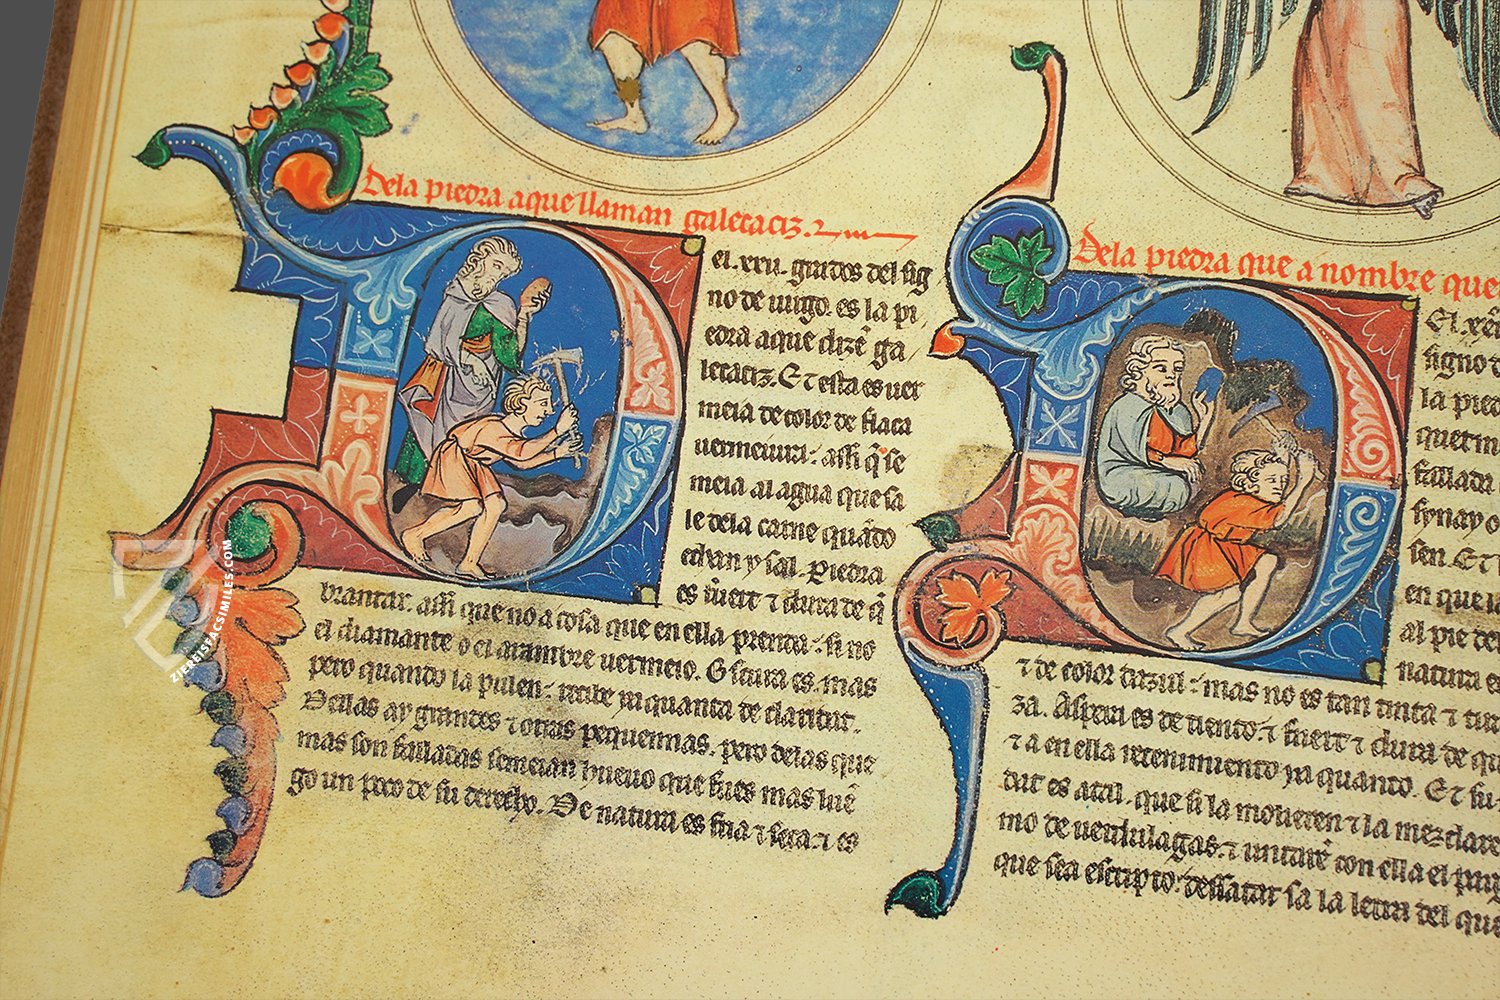 Dela piedra aque llaman galecaciz.
el .xxii. grados del sig
no de uirgo. es la pi,
edra aque dizẽ ga
lecaciz. Et esta es uer
meia de color de flaca
uermeiura. assi q̃ se
meia al agua que sa
le dela carne quãdo
echan y sal. Piedra
es fuert ⁊ dura de q̃
brantar. assi que no a cosa que en ella prenda. si no
el diamante o el arambre uermeio. Escura es. mas
pero quando la pulen. recibe ya quanta de claridat.
Dellas ay grandes ⁊ otras pequennas. pero delas que
mas son falladas semeian hueuo que fues mas luẽ
go un poco de su derecho. De natura es fria ⁊ seca. ⁊ es
Dela piedra que a nombre que
El
signo
la pied
querm
fallada
fynay o
sen. Et
en que
al pie de
natura e
⁊ de color dazul. mas no es tan tinta ⁊ tur
za. Aspera es de tiento. ⁊ fuert ⁊ dura de qu
⁊ a en ella retenimiento ya quanto. Et su
dut es atal. que si la molieren ⁊ la mezclare
mo de uerdulagas. ⁊ untarẽ con ella el purg
que sea escripto. dessatar sa la letra del que
ZIEREISFACSIMILES.COM